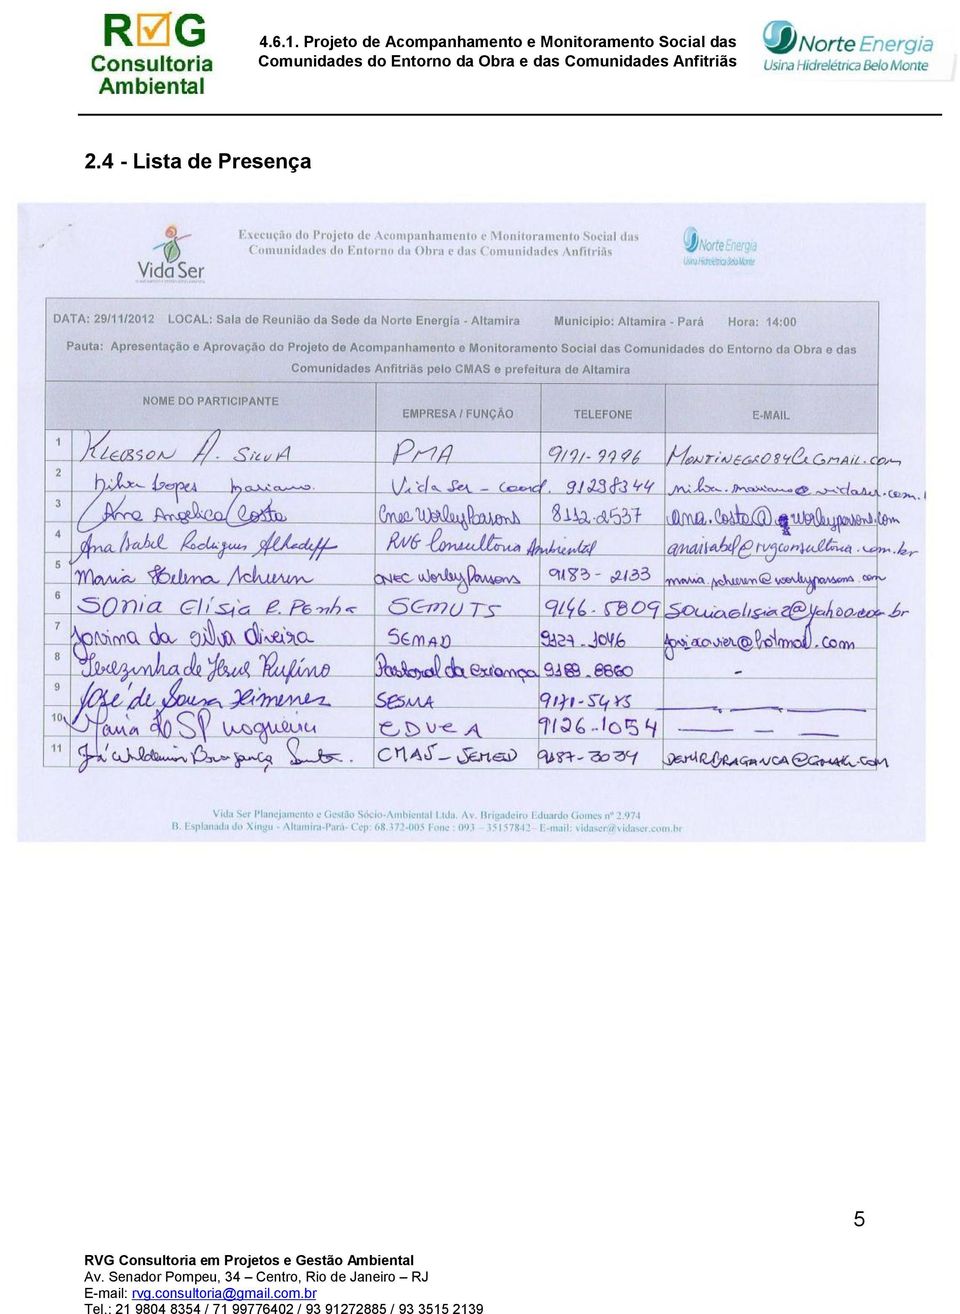 RVG
Consultoria
Ambiental
4.6.1. Projeto de Acompanhamento e Monitoramento Social das
Comunidades do Entorno da Obra e das Comunidades Anfitriãs
Norte Energia
Usina Hidrelétrica Belo Monte
2.4 - Lista de Presença
Vida Ser
Execução do Projeto de Acompanhamento e Monitoramento Social das
Comunidades do Entorno da Obra e das Comunidades Anfitriãs
Norte Energia
Usina Hidrelétrica Belo Monte
DATA: 29/11/2012 LOCAL: Sala de Reunião da Sede da Norte Energia - Altamira Municipio: Altamira - Pará Hora: 14:00
Pauta: Apresentação e Aprovação do Projeto de Acompanhamento e Monitoramento Social das Comunidades do Entorno da Obra e das
Comunidades Anfitriãs pelo CMAS e prefeitura de Altamira
NOME DO PARTICIPANTE EMPRESA / FUNÇÃO TELEFONE E-MAIL
1 Klebson A. Silva PMA 9191-9996 Montinegro84@Gmail.com
2 Nilva Lopes Mariano. Vida Ser - Coord. 91238344 nilva.mariano@vidaser.com.
3 Ana Angelica Costa Cnec WorleyParsons 8112-2537 ana.Costa@worleyparsons.com
4 Ana Isabel Rodrigues Alhadeff RVG Consultoria Ambiental anaisabel@rvgconsultoria.com.br
5 Maria Helena Acheren CNEC WorleyParsons 9183-2133 maria.acheren@worleyparsons.com
6 SONIA Elísia R. Penha SEMUTS 9146-5809 soniaelisia2@yahoo.com.br
7 Josima da Silva Oliveira SEMAD 9127-1046 josixavier@hotmail.com
8 Terezinha de Jesus Rufino Pastoral da criança 9189.8860 -
9 José de Sousa Ximenes SESMA 9171-5475
10 Maria do SP Nogueira EDVEA 9126-1054
11 Bragança CMAS-SEMED 9187-3034 DEMIRBRAGANCA@GMAIL.COM
Vida Ser Planejamento e Gestão Sócio-Ambiental Ltda. Av. Brigadeiro Eduardo Gomes nº 2.974
B. Esplanada do Xingu - Altamira-Pará- Cep: 68.372-005 Fone : 093 - 35157842 E-mail: vidaser@vidaser.com.br
5
RVG Consultoria em Projetos e Gestão Ambiental
Av. Senador Pompeu, 34 – Centro, Rio de Janeiro – RJ
E-mail: rvg.consultoria@gmail.com.br
Tel.: 21 9804 8354 / 71 99776402 / 93 91272885 / 93 3515 2139